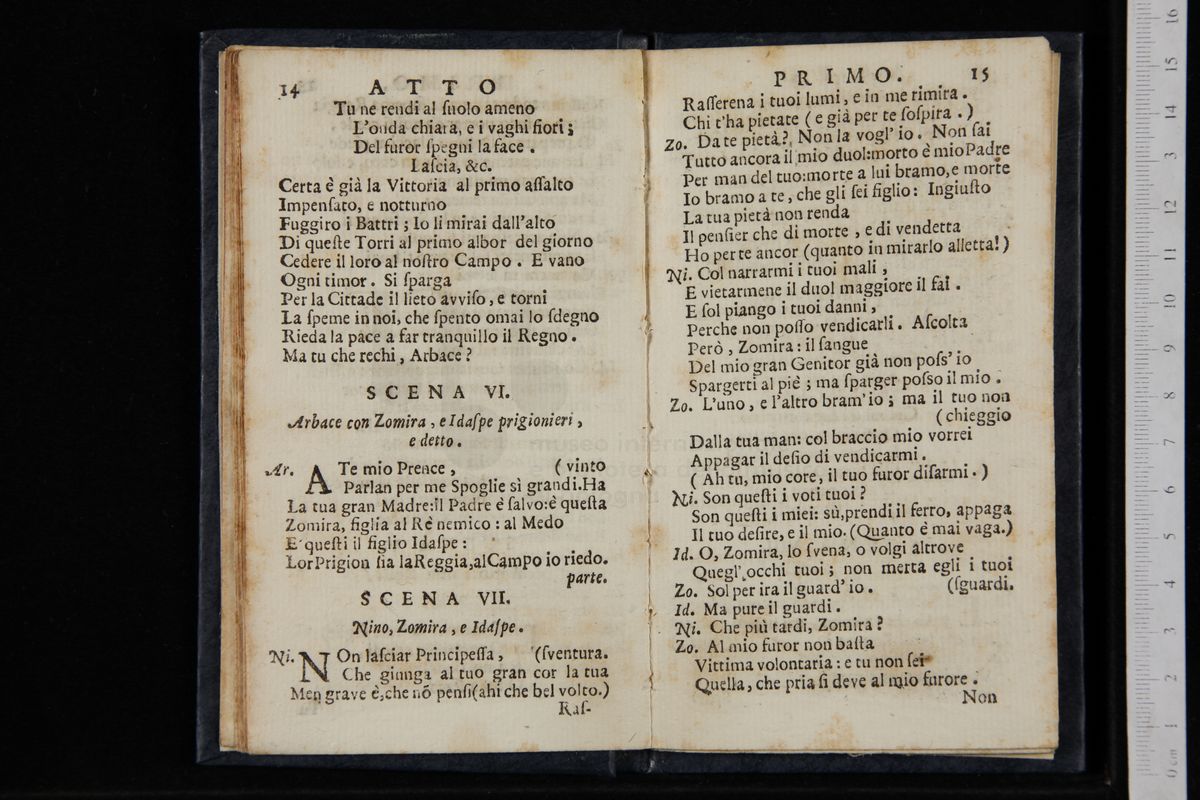 14 ATTO
Tu ne rendi al ſuolo ameno
L'onda chiara, e i vaghi fiori;
Del furor ſpegni la face.
Laſcia, &c.
Certa è già la Vittoria al primo aſſalto
Impenſato, e notturno
Fuggiro i Battri; Io li mirai dall'alto
Di queſte Torri al primo albor del giorno
Cedere il loro al noſtro Campo. E vano
Ogni timor. Si ſparga
Per la Cittade il lieto avviſo, e torni
La ſpeme in noi, che ſpento omai lo ſdegno
Rieda la pace a far tranquillo il Regno.
Ma tu che rechi, Arbace?
SCENA VI.
Arbace con Zomira, e Idaſpe prigionieri,
e detto.
Ar. A Te mio Prence, (vinto
Parlan per me Spoglie sì grandi. Ha
La tua gran Madre: il Padre è ſalvo: è queſta
Zomira, figlia al Rè nemico: al Medo
E' queſti il figlio Idaſpe:
Lor Prigion ſia la Reggia, al Campo io riedo.
parte.
SCENA VII.
Nino, Zomira, e Idaſpe.
Ni. NOn laſciar Principeſſa, (ſventura.
Che giunga al tuo gran cor la tua
Men grave è, che nõ penſi (ahi che bel volto.)
Raſ-
PRIMO. 15
Raſſerena i tuoi lumi, e in me rimira.
Chi t'ha pietate (e già per te ſoſpira.)
Zo. Da te pietà? Non la vogl' io. Non ſai
Tutto ancora il mio duol: morto è mio Padre
Per man del tuo: morte a lui bramo, e morte
Io bramo a te, che gli ſei figlio: Ingiuſto
La tua pietà non renda
Il penſier che di morte, e di vendetta
Ho per te ancor (quanto in mirarlo alletta!)
Ni. Col narrarmi i tuoi mali,
E vietarmene il duol maggiore il fai.
E ſol piango i tuoi danni,
Perche non poſſo vendicarli. Aſcolta
Però, Zomira: il ſangue
Del mio gran Genitor già non poſs' io
Spargerti al piè; ma ſparger poſso il mio.
Zo. L'uno, e l'altro bram' io; ma il tuo non
(chieggio
Dalla tua man: col braccio mio vorrei
Appagar il deſio di vendicarmi.
(Ah tu, mio core, il tuo furor diſarmi.)
Ni. Son queſti i voti tuoi?
Son queſti i miei: sù, prendi il ferro, appaga
Il tuo deſire, e il mio. (Quanto è mai vaga.)
Id. O, Zomira, lo ſvena, o volgi altrove
Quegl' occhi tuoi; non merta egli i tuoi
Zo. Sol per ira il guard' io. (ſguardi.
Id. Ma pure il guardi.
Ni. Che più tardi, Zomira?
Zo. Al mio furor non baſta
Vittima volontaria: e tu non ſei
Quella, che pria ſi deve al mio furore.
Non